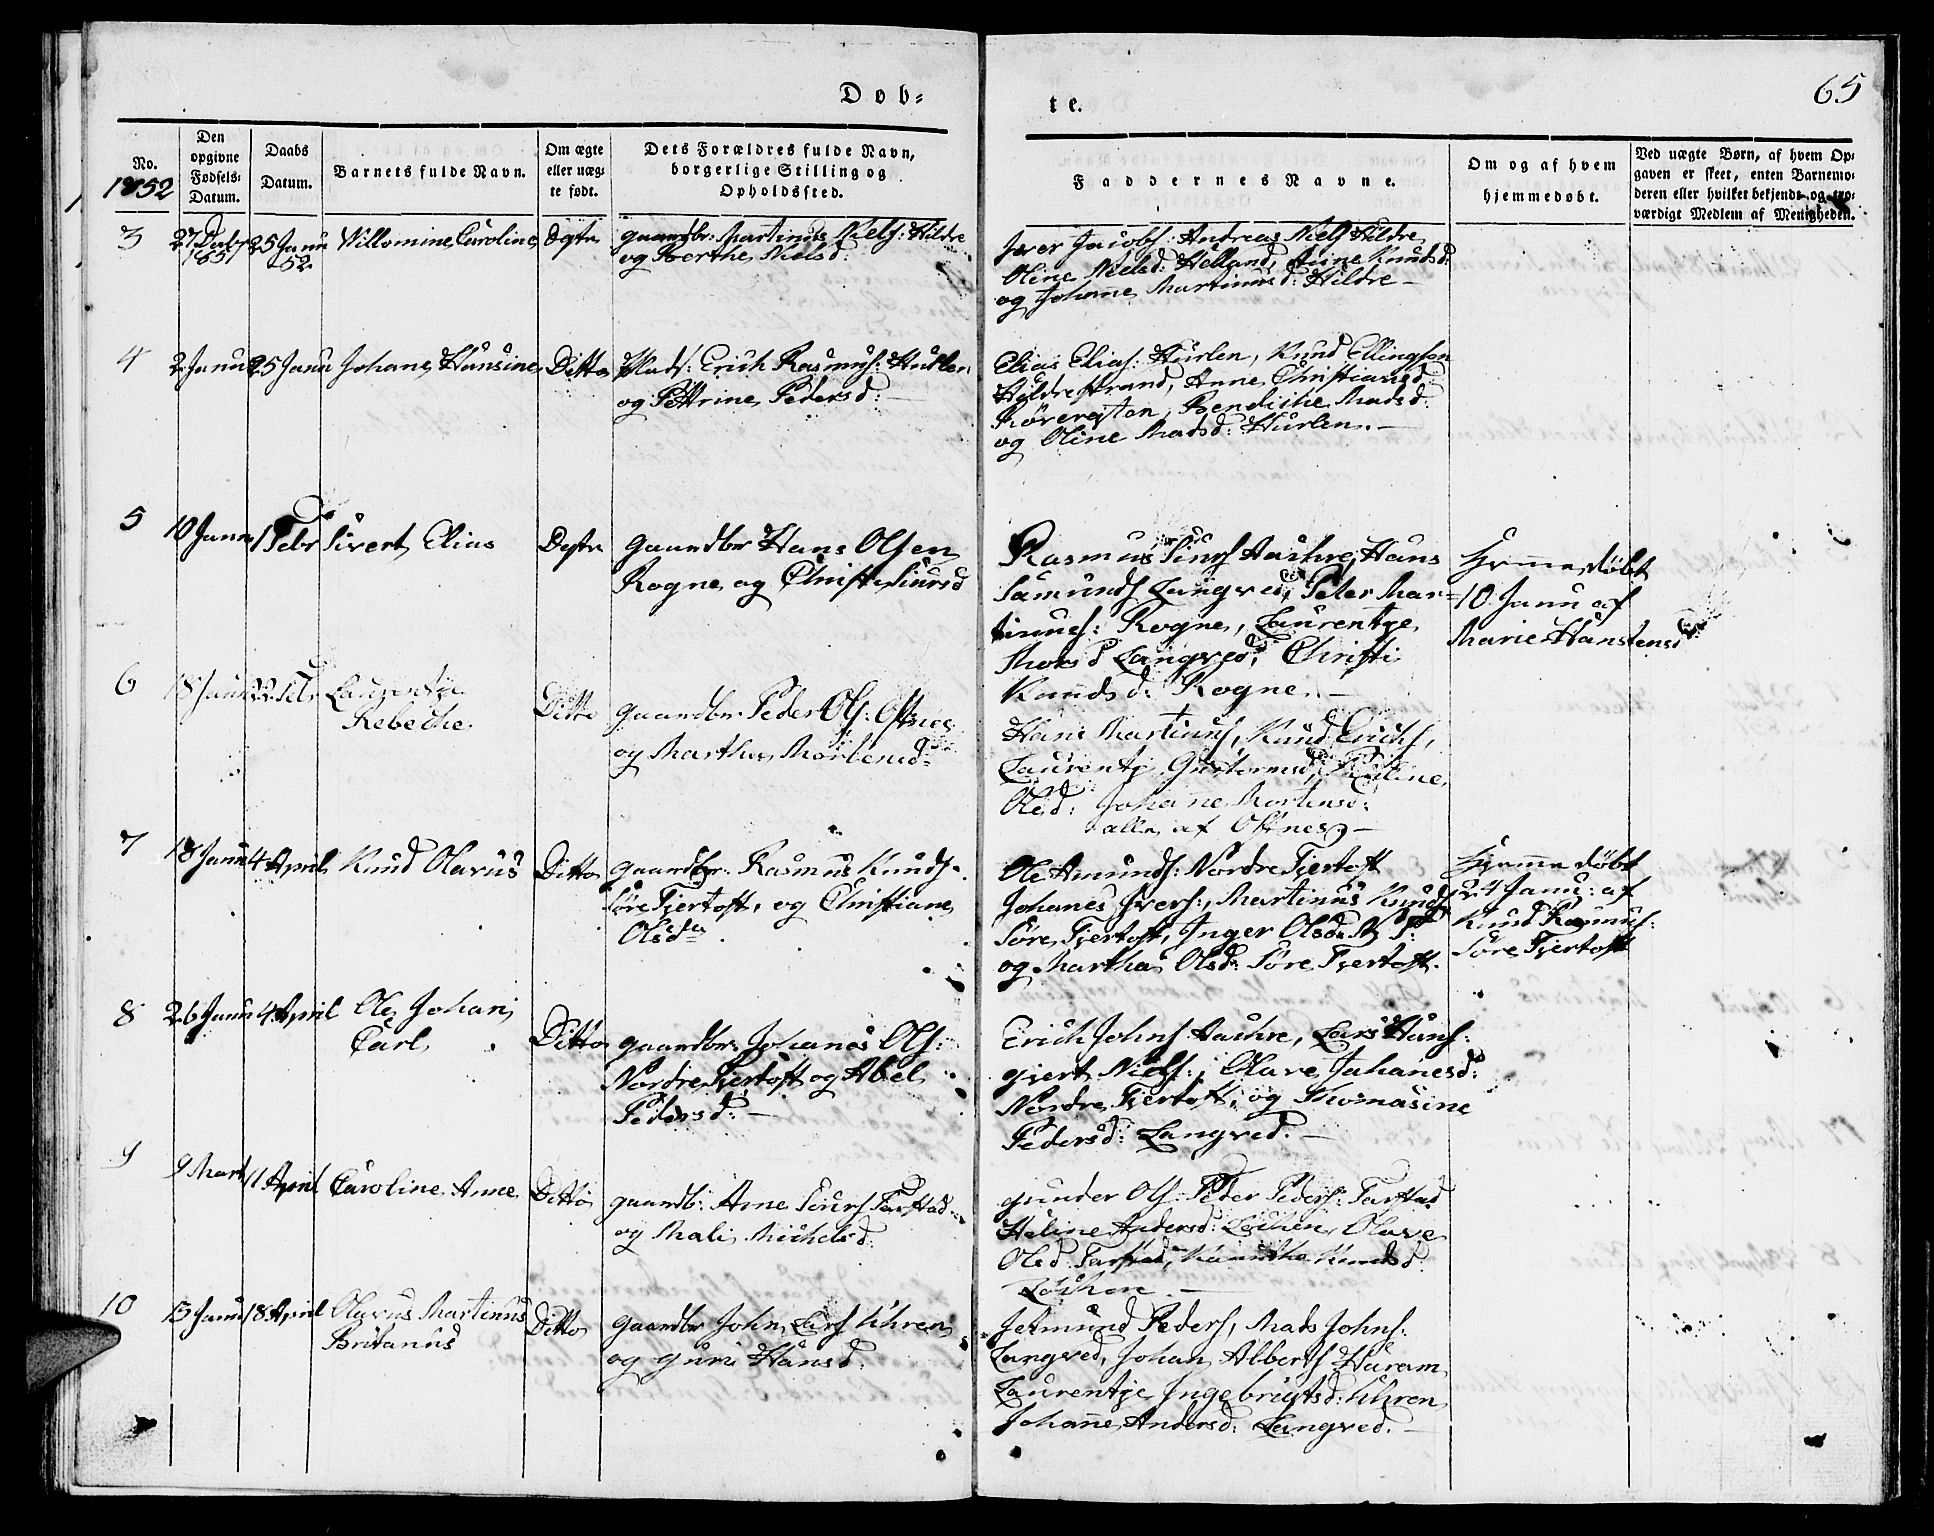 Døb=
te.
65
No.
1852
Den
opgivne
Fødsels-
Datum.
Daabs
Datum.
Barnets fulde Navn.
Om ægte
eller uæg-
te født.
Dets Forældres fulde Navn,
borgerlige Stilling og
Opholdssted.
Faddernes Navne.
Om og af hvem
hjemmedøbt.
Ved uægte Børn, af hvem Op-
gaven er skeet, enten Barnemo-
deren eller hvilket bekjendt og tro-
værdigt Medlem af Menigheden.
3
27 Decbr
1851
25 Janu
52
Willomine Caroline
Ægte
Gaardbr: Martinus Niels: Hildre
og Berthe Nielsd:
Iver Jacobs: Andreas Niels Hildre
Oline Nielsd: Helland, Anne Knudsd:
og Johanne Martinusd: Hildre –
4
2 Janu
25 Janu
Johane Hansine
Ditto
Plads: Erich Rasmus: Hurlen
og Pettrine Pedersd: –
Elias Elias: Hurlen, Knud Ellingsen
Hildrestrand, Anne Christiansd
Bendicthe Madsd:
og Oline Madsd: Hurlen. –
5
10 Janu
1 Febr
Sivert Elias
Ægte
Gaardbr Hans Olsen
Rogne og Christi Siursd
Rasmus Siurs Aachre, Hans
Samunds Langved, Peter Mar=
tinus: Rogne, Laurentje
Langved, Christi
Knudsd: Rogne. –
Hjemmedøbt
10 Janu af
Marie Hanstensd
6
18 Janu
22 Febr
Laurentje
Rebecke
Ditto
Gaardbr Peder Ols: Ofsnes
og Marthe Mortensd
Hans Martinus, Knud Erichs,
Laurentj Guttormsd,
Olsd: Johanne Mortensd:
alle af Ofsnes –
7
18 Janu
4 April
Knud Olavus
Ditto
Gaardbr. Rasmus Knuds.
Søre Fjertoft, og Christiane
Olsd
Ole Amunds: Nordre Fjertoft
Johanes Ivers:, Martinus Knuds
Søre Fjertoft, Inger Olsd:
og Martha Olsd: Søre Fjertoft.
Hjemmedøbt
24 Janu: af
Knud Rasmus:
Søre Fjertoft
8
26 Janu
4 April
Ole Johan
Carl
Ditto
Gaardbr: Johanes Ols:
Nordre Fjertoft og Abel
Pedersd: –
Erich Johns Aachre, Lars Hans:
Gjert Niels:, Olave Johanesd:
Nordre Fjertoft, og Thomasine
Pedersd: Langved. –
9
9 Mart
11 April
Caroline Anne
Ditto
Gaardb: Arne Siurs Farstad
og Mali Michelsd:
Gunder Ols: Peder Peders: Farstad
Heline Andersd: Løchen, Olave
Olsd Farstad, Knudsd
Løchen. –
10
13 Janu
18 April
Olavus Martinus
Britanus
Ditto
Gaardbr John Lars Uhren
og Guri Hansd:
Jetmund Peders, Mads Johns:
Langved, Johan Alberts Haram
Laurentje Ingebrigtsd: Uhren
Johanne Andersd: Langved. –